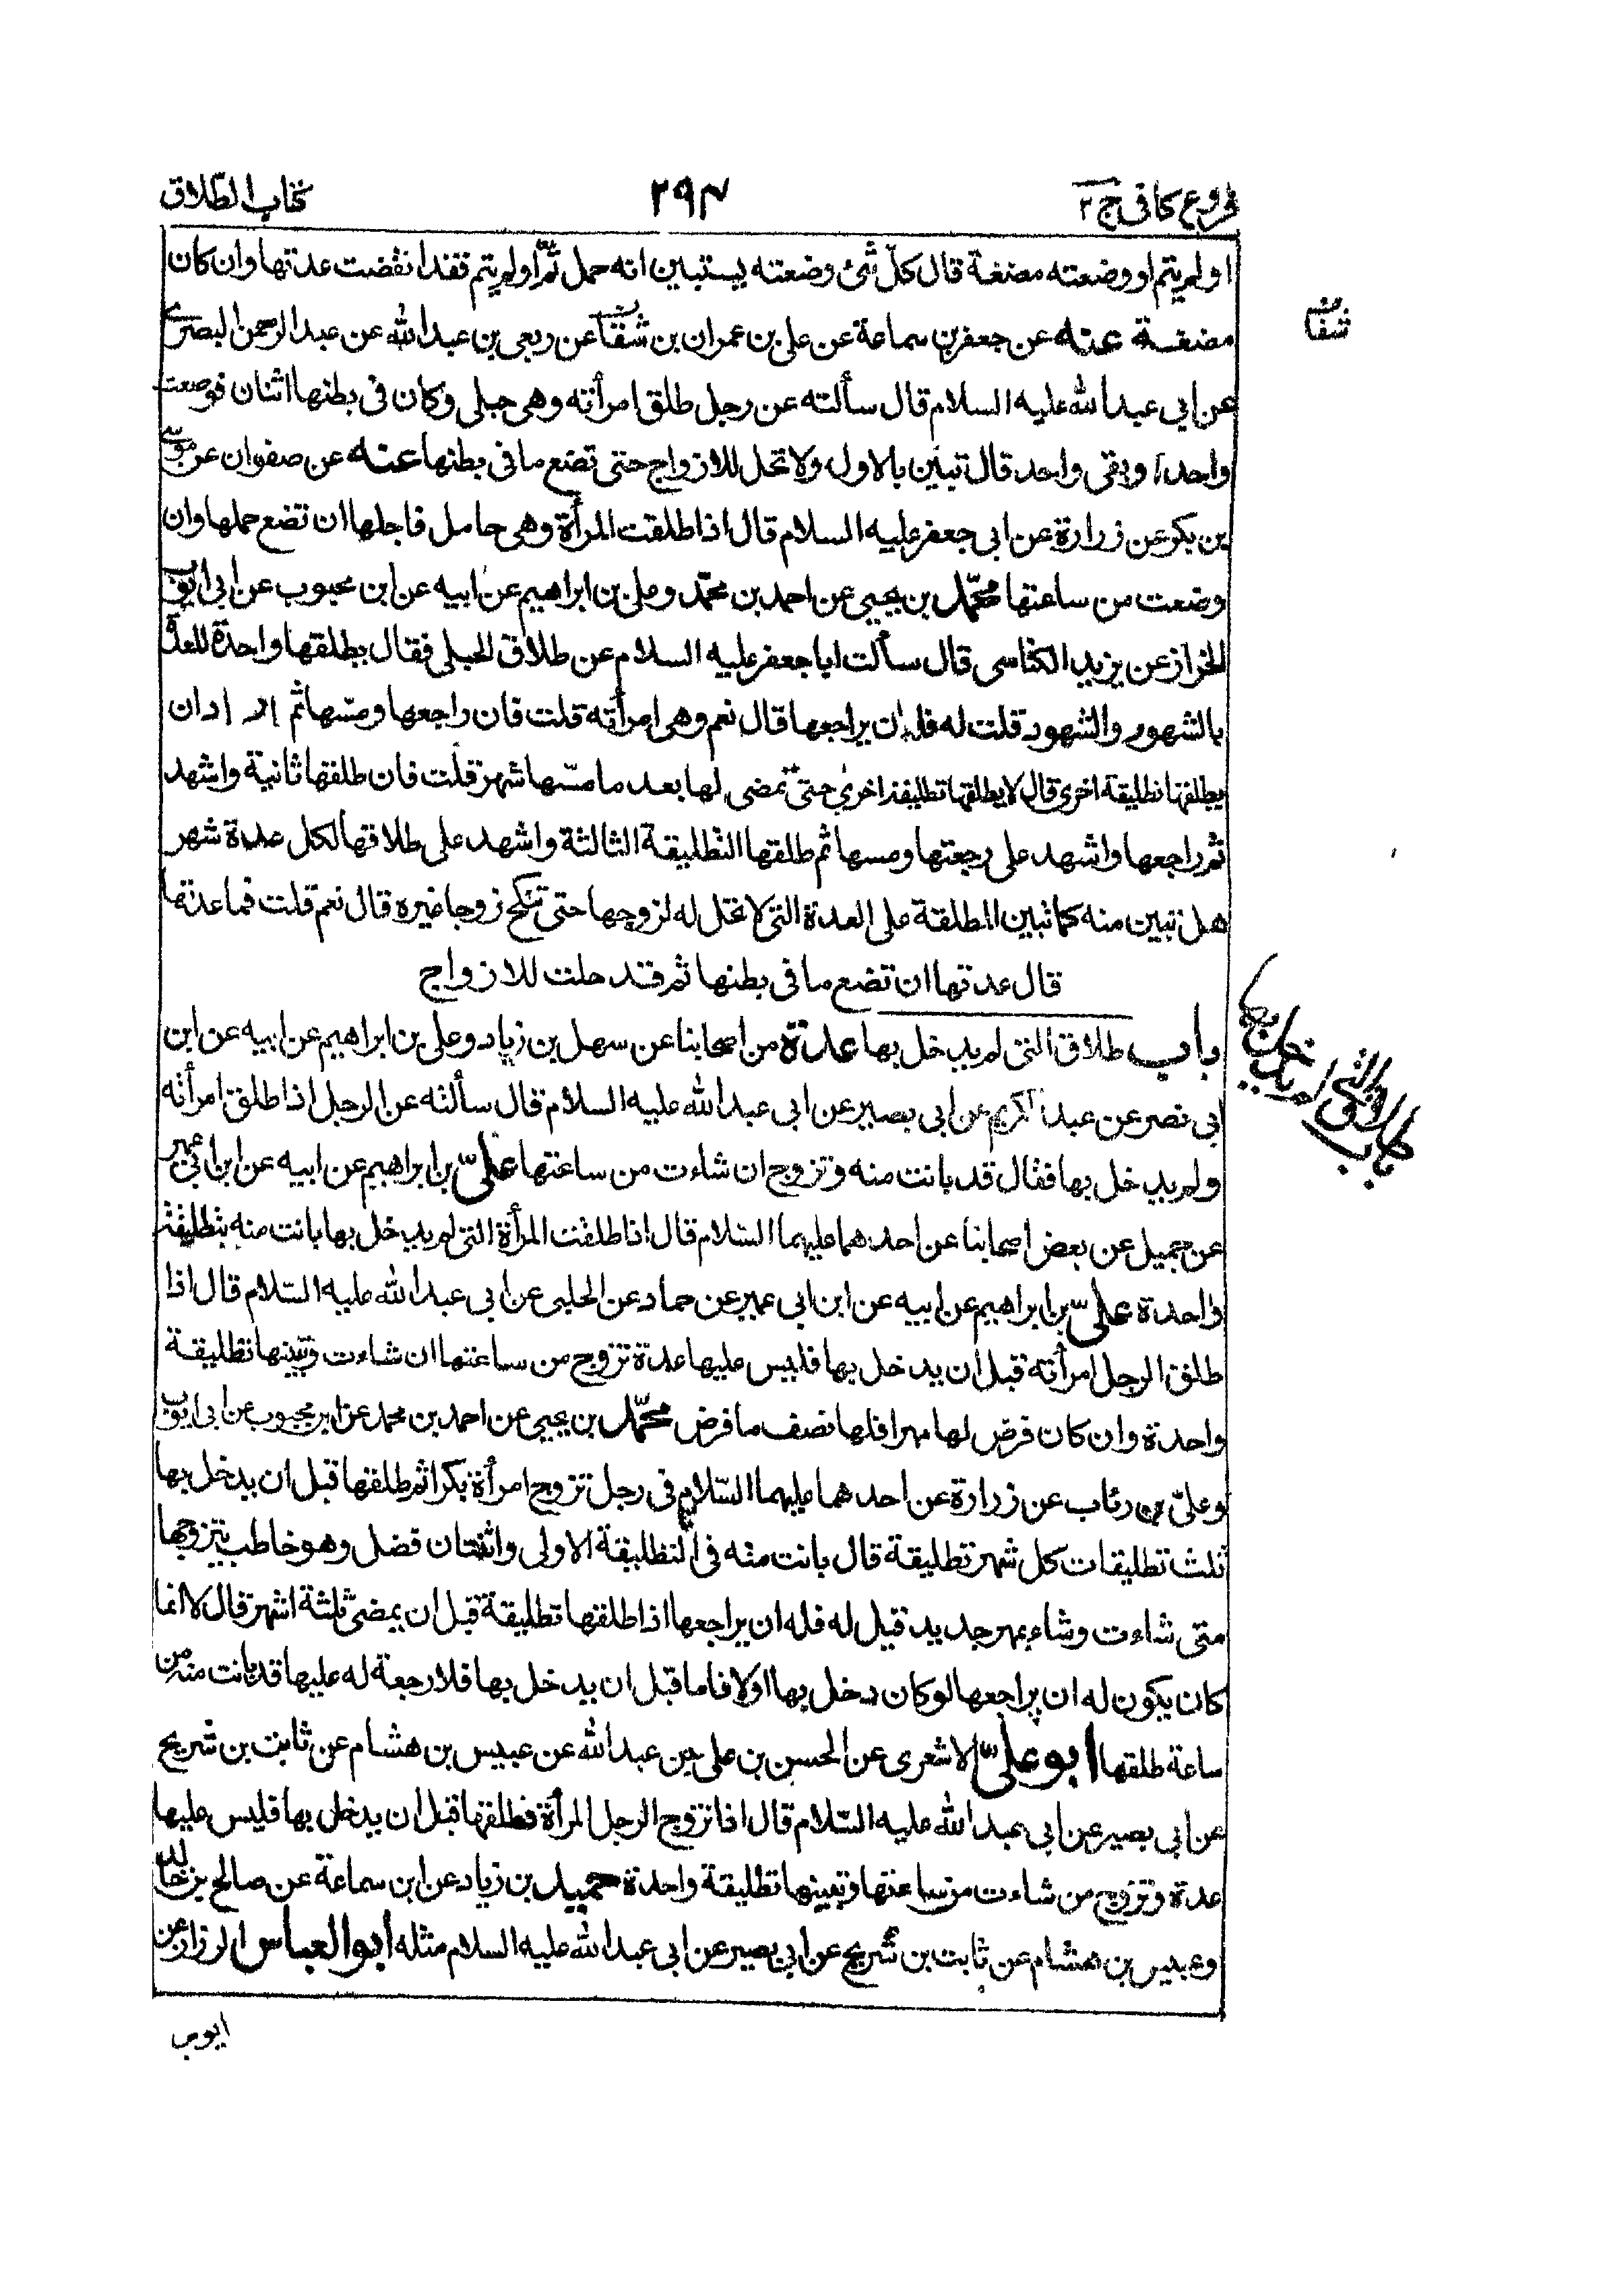 فروع كافى ج ٢
٢٩٤
كتاب الطلاق
او لم يتم او وضعته مضغة قال كلّ شئ وضعته يستبين انه حمل تمّ او لم يتم فقد انقضت عدتها وان كان
مضغة عنه عن جعفر بن سماعة عن على بن عمران بن شفا عن ربعى بن عبد الله عن عبد الرحمن البصرى
شفا
عن ابى عبد الله عليه السلام قال سألته عن رجل طلق امرأته وهى حبلى وكان فى بطنها اثنان فوضعت
واحدا وبقى واحد قال تبين بالاول ولا تحل للازواج حتى تضع ما فى بطنها عنه عن صفوان عن موسى
بن بكر عن زرارة عن ابى جعفر عليه السلام قال اذا طلقت المرأة وهى حامل فاجلها ان تضع حملها وان
وضعت من ساعتها محمّد بن يحيى عن احمد بن محمّد وعلى بن ابراهيم عن ابيه عن ابن محبوب عن ابى ايوب
الخزاز عن يزيد الكناسى قال سألت ابا جعفر عليه السلام عن طلاق الحبلى فقال يطلقها واحدة للعدة
بالشهور والشهود قلت له فله ان يراجعها قال نعم وهى امرأته قلت فان راجعها ومسّها ثم اراد ان
يطلقها تطليقة اخرى قال لا يطلقها تطليقة اخرى حتى تمضى لها بعد ما مسّها شهر قلت فان طلقها ثانية واشهد
ثم راجعها واشهد على رجعتها ومسها ثم طلقها التطليقة الثالثة واشهد على طلاقها لكل عدة شهر
هل تبين منه كما تبين المطلقة على العدة التى لا تحل له لزوجها حتى تنكح زوجا غيره قال نعم قلت فما عدتها
قال عدتها ان تضع ما فى بطنها ثم قد حلت للازواج
باب طلاق التى لم يدخل بها
باب طلاق التى لم يدخل بها عدة من اصحابنا عن سهل بن زياد وعلى بن ابراهيم عن ابيه عن ابن
ابى نصر عن عبد الكريم عن ابى بصير عن ابى عبد الله عليه السلام قال سألته عن الرجل اذا طلق امرأته
ولم يدخل بها فقال قد بانت منه وتزوج ان شاءت من ساعتها علىّ بن ابراهيم عن ابيه عن ابن ابى عمير
عن جميل عن بعض اصحابنا عن احدهما عليهما السّلام قال اذا طلقت المرأة التى لم يدخل بها بانت منه بتطليقة
واحدة علىّ بن ابراهيم عن ابيه عن ابن ابى عمير عن حماد عن الحلبى عن ابى عبد الله عليه السّلام قال اذا
طلق الرجل امرأته قبل ان يدخل بها فليس عليها عدة تزوج من ساعتها ان شاءت وتبينها تطليقة
واحدة وان كان فرض لها مهرا فلها نصف ما فرض محمّد بن يحيى عن احمد بن محمد عن ابن محبوب عن ابى ايوب
وعلىّ بن رئاب عن زرارة عن احدهما عليهما السّلام فى رجل تزوج امرأة بكرا ثم طلقها قبل ان يدخل بها
ثلث تطليقات كل شهر تطليقة قال بانت منه فى التطليقة الاولى واثنتان فضل وهو خاطب يتزوجها
متى شاءت وشاء بمهر جديد قيل له فله ان يراجعها اذا طلقها تطليقة قبل ان يمضى ثلثة اشهر قال لا انما
كان يكون له ان يراجعها لو كان دخل بها اولا فاما قبل ان يدخل بها فلا رجعة له عليها قد بانت منه من
ساعة طلقها ابو علىّ الاشعرى عن الحسن بن على بن عبد الله عن عبيس بن هشام عن ثابت بن شريح
عن ابى بصير عن ابى عبد الله عليه السّلام قال اذا تزوج الرجل المرأة فطلقها قبل ان يدخل بها فليس عليها
عدة وتزوج من شاءت من ساعتها وتبينها تطليقة واحدة حميد بن زياد عن ابن سماعة عن صالح بن خالد
وعبيس بن هشام عن ثابت بن شريح عن ابى بصير عن ابى عبد الله عليه السلام مثله ابو العباس الرزاز عن
ايوب